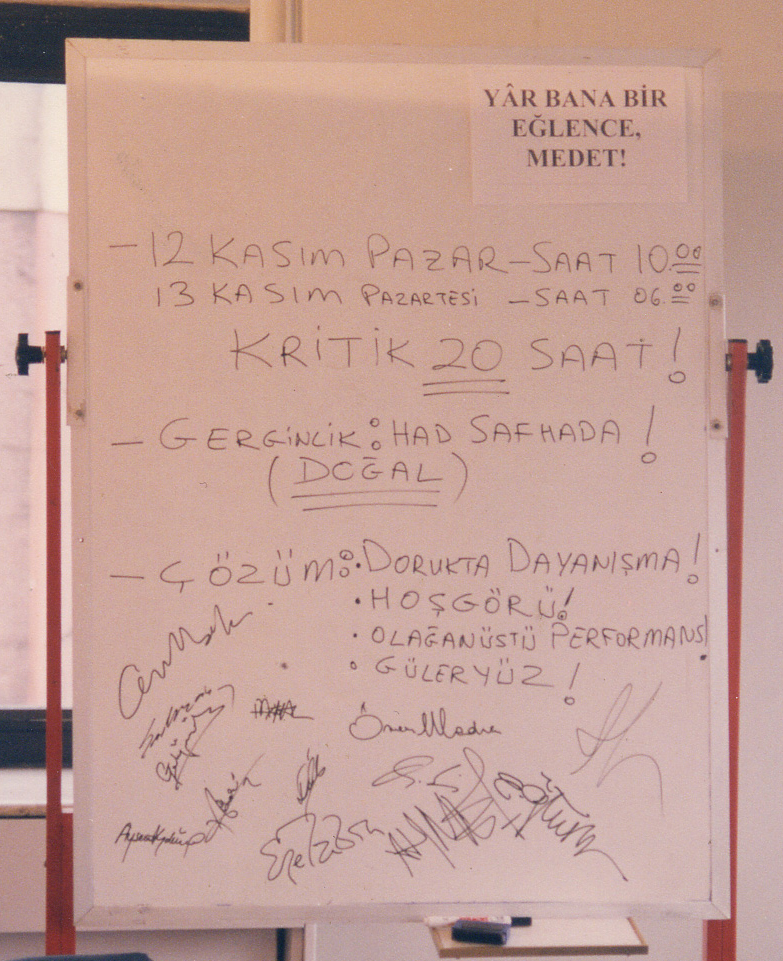 YÂR BANA BİR
EĞLENCE,
MEDET!
- 12 KASIM PAZAR - SAAT 10.00
13 KASIM PAZARTESİ - SAAT 06.00
KRİTİK 20 SAAT!
- GERGİNLİK: HAD SAFHADA!
(DOĞAL)
- ÇÖZÜM: • DORUKTA DAYANIŞMA!
• HOŞGÖRÜ!
• OLAĞANÜSTÜ PERFORMANS!
• GÜLERYÜZ!
Ömer Madra